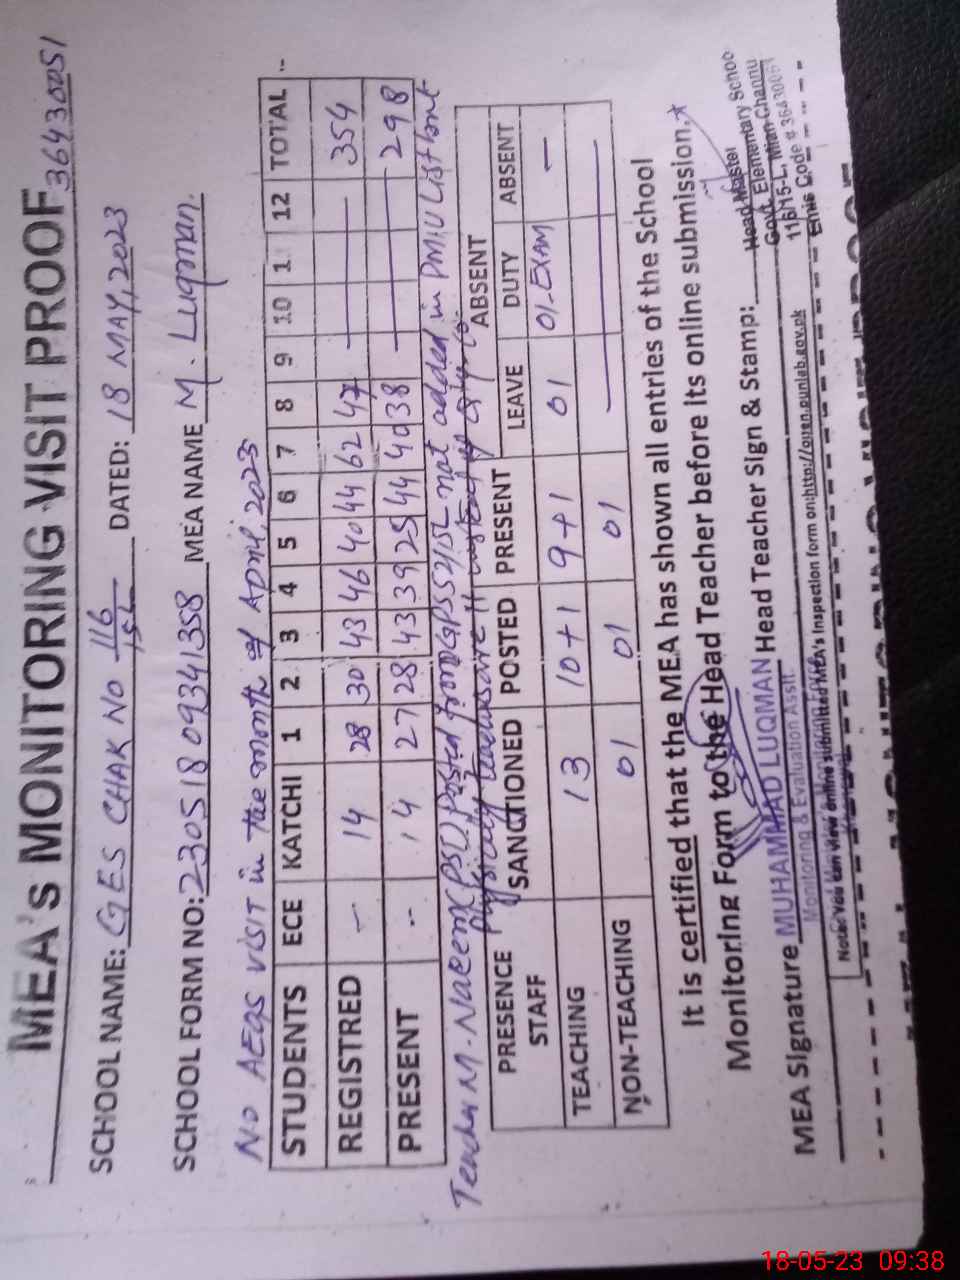 MEA's MONITORING VISIT PROOF 36430051
SCHOOL NAME: GES CHAK NO 116/15L DATED: 18 MAY, 2023
SCHOOL FORM NO: 23051809341358 MEA NAME M. Luqman.
No AEOs visit in the month of April, 2023
STUDENTS ECE KATCHI 1 2 3 4 5 6 7 8 9 10 1 12 TOTAL
REGISTRED - 14 28 30 43 46 40 44 62 47 — 354
PRESENT -- 14 27 28 43 39 25 44 40 38 — 298
Teacher M. Naeem (PST) Posted from GPS 52/15L not added in PMIU list but
physically teachers are 11 instead of
PRESENCE SANCTIONED POSTED PRESENT ABSENT
STAFF LEAVE DUTY ABSENT
TEACHING 13 10+1 9+1 01 01-EXAM —
NON-TEACHING 01 01 01 —
It is certified that the MEA has shown all entries of the School
Monitoring Form to the Head Teacher before its online submission.
MEA Signature MUHAMMAD LUQMAN Head Teacher Sign & Stamp:
Monitoring & Evaluation Asstt.
Head Master
Govt. Elementary School
116/15-L, Mian Channu
Emis Code # 36430051
Note: You can view online submitted MEA's Inspection form on:http://open.punjab.gov.pk
18-05-23 09:38